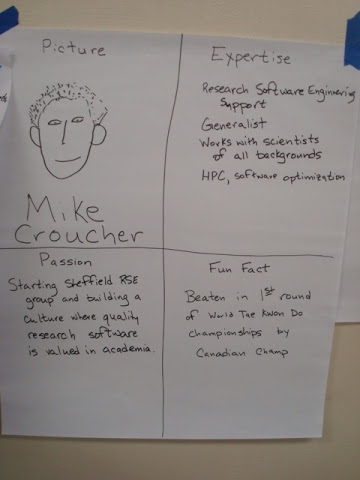 Picture
Mike
Croucher
Expertise
Research Software Engineering
Support
Generalist
Works with scientists
of all backgrounds
HPC, software optimization
Passion
Starting Sheffield RSE
group and building a
culture where quality
research software
is valued in academia.
Fun Fact
Beaten in 1st round
of World Tae Kwon Do
championships by
Canadian Champ